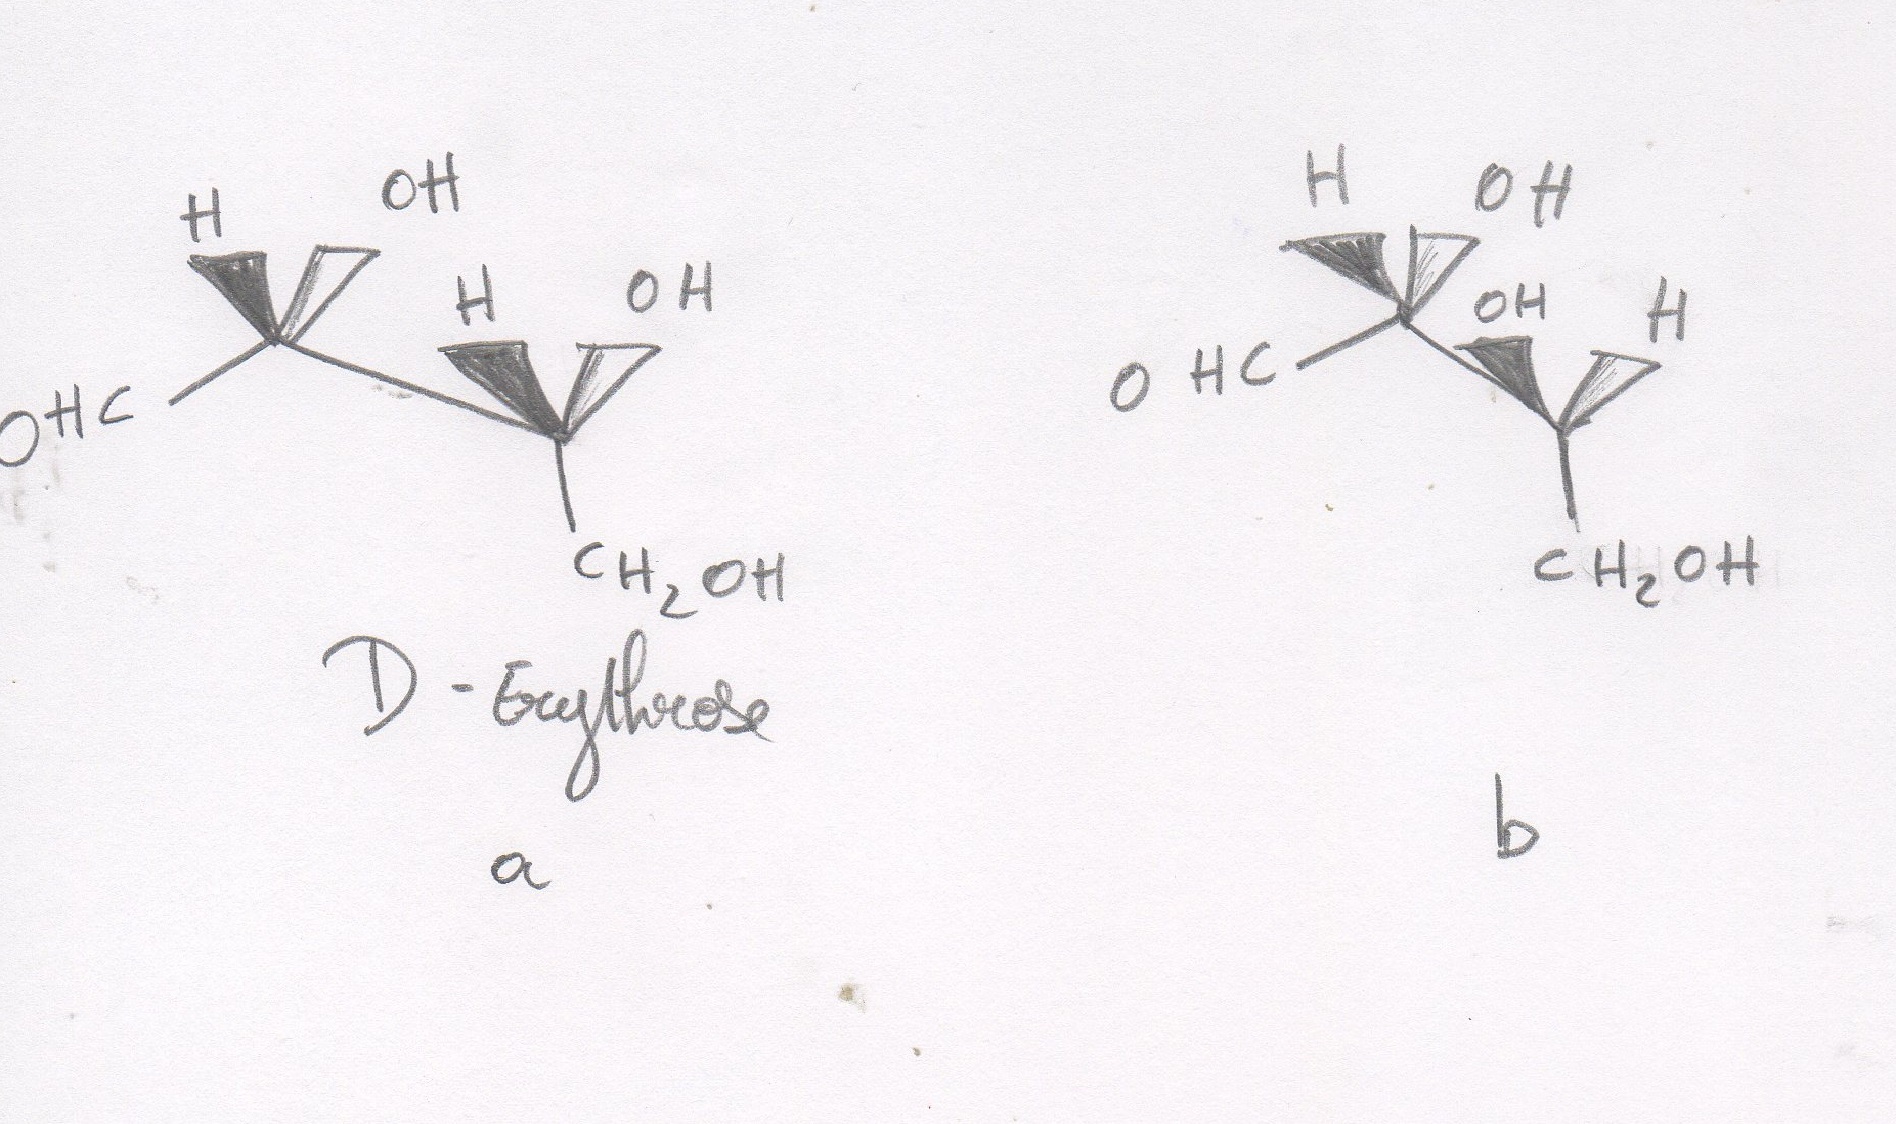 H OH
H OH
OHC
CH2OH
D-Erythrose
a
H OH
OH H
OHC
CH2OH
b